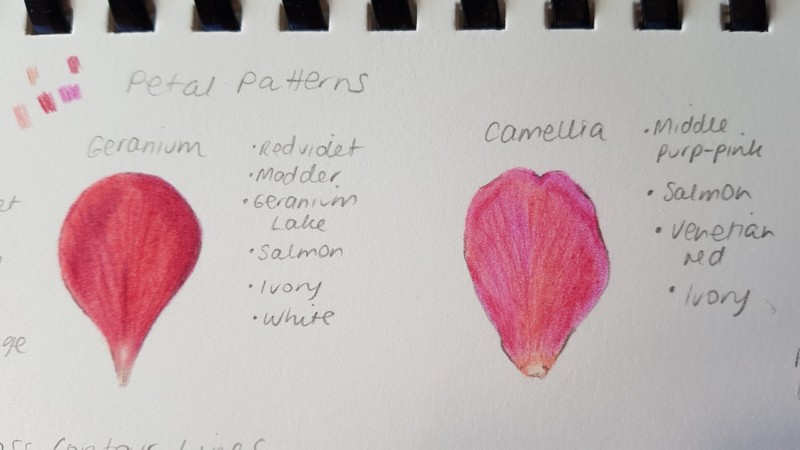 Petal Patterns
Geranium
• Redviolet
• Madder
• Geranium
Lake
• Salmon
• Ivory
• White
Camellia
• Middle
purp-pink
• Salmon
• Venetian
red
• Ivory
Contour Lines